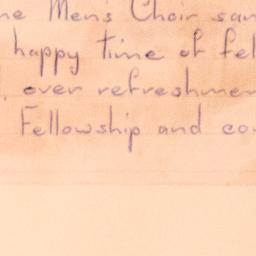 he Men's Choir san
happy time of fel
, over refreshmen
Fellowship and co